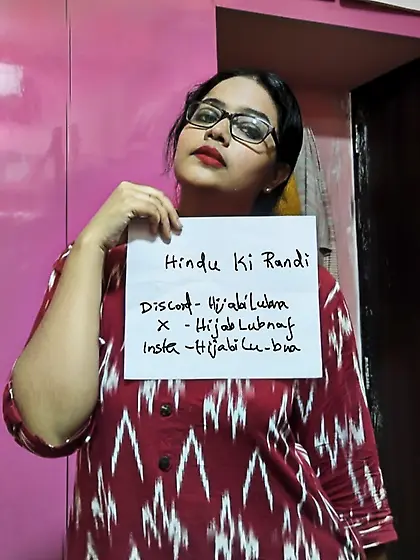 Hindu Ki Randi
Discord - HijabiLubna
X - HijabLubnaf
Insta - HijabiLu-bna